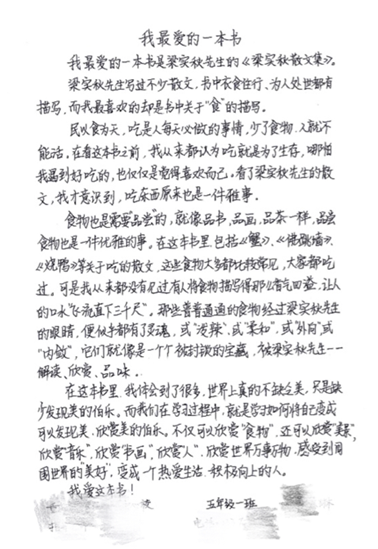 我最爱的一本书
我最爱的一本书是梁实秋先生的《梁实秋散文集》。
梁实秋先生写过不少散文,书中衣食住行、为人处世都有
描写,而我最喜欢的却是书中关于“食”的描写。
民以食为天,吃是人每天必做的事情,少了食物,人就不
能活。在看这本书之前,我从来都认为吃就是为了生存,哪怕
我遇到好吃的,也仅仅是觉得喜欢而已。看了梁实秋先生的散
文,我才意识到,吃东西原来也是一件雅事。
食物也是需要品尝的,就像品书,品画,品茶一样,品尝
食物也是一件优雅的事。在这本书里包括《蟹》、《 》、
《烧鸭》等关于吃的散文,这些食物大多都比较常见,大家都吃
过。可是我从来都没见过有人将食物描写得那么香气四溢,让人
的口水“飞流直下三千尺”。那些普普通通的食物经过梁实秋先生
的眼睛,便似乎都有了灵魂,或“泼辣”,或“柔和”,或“外向”或
“内敛”,它们就像是一个个被封锁的宝藏,被梁实秋先生一一
解读、欣赏、品味。
在这本书里,我体会到了很多,世界上真的不缺乏美,只是缺
少发现美的伯乐。而我们在学习过程中,就是学习如何将自己变成
可以发现美,欣赏美的伯乐。不仅可以欣赏“食物”,还可以欣赏“美景”,
欣赏“音乐”,欣赏“书画”,欣赏“人”,欣赏世界万事万物,感受到周
围世界的美好,变成一个热爱生活,积极向上的人。
我爱这本书!
五年级一班